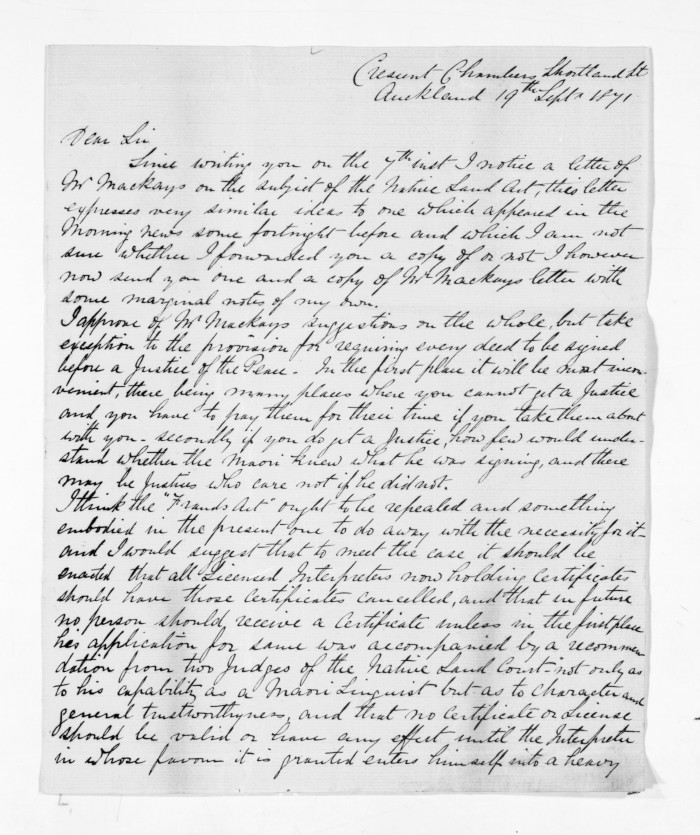 Crescent Chambers Shortland St
Auckland 19th Septr 1871
Dear Sir
Since writing you on the 7th inst I notice a letter of
Mr Mackays on the subject of the Native Land Act, this letter
expresses very similar ideas to one which appeared in the
Morning news some fortnight before and which I am not
sure whether I forwarded you a copy of or not I however
now send you one and a copy of Mr Mackays letter with
some marginal notes of my own.
I approve of Mr Mackays suggestions on the whole, but take
exception to the provision for requiring every deed to be signed
before a Justice of the Peace - In the first place it will be most incon-
venient, there being many places where you cannot get a Justice
and you have to pay them for their time if you take them about
with you - secondly if you do get a Justice, how few would under-
stand whether the Maori knew what he was signing, and there
may be Justices who care not if he did not.
I think the "Frauds Act" ought to be repealed and something
embodied in the present one to do away with the necessity for it -
and I would suggest that to meet the case it should be
enacted that all Licensed Interpreters now holding Certificates
should have those Certificates cancelled, and that in future
no person should receive a Certificate unless in the first place
his application for same was accompanied by a recommen
dation from two Judges of the Native Land Court not only as
to his capability as a Maori Linguist but as to Character and
general trustworthyness, and that no Certificate or License
should be valid or have any effect until the Interpreter
in whose favour it is granted enters himself into a heavy